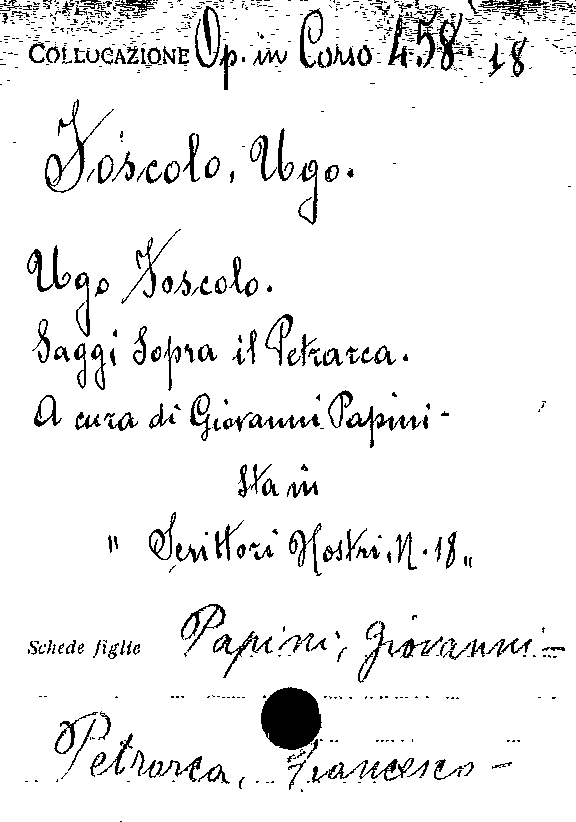 COLLOCAZIONE Op. in Corso 458 18
Foscolo, Ugo.
Ugo Foscolo.
Saggi Sopra il Petrarca.
A cura di Giovanni Papini -
Sta in
" Scrittori Nostri, N. 18 "
Schede figlie Papini, Giovanni -
Petrarca, Francesco -